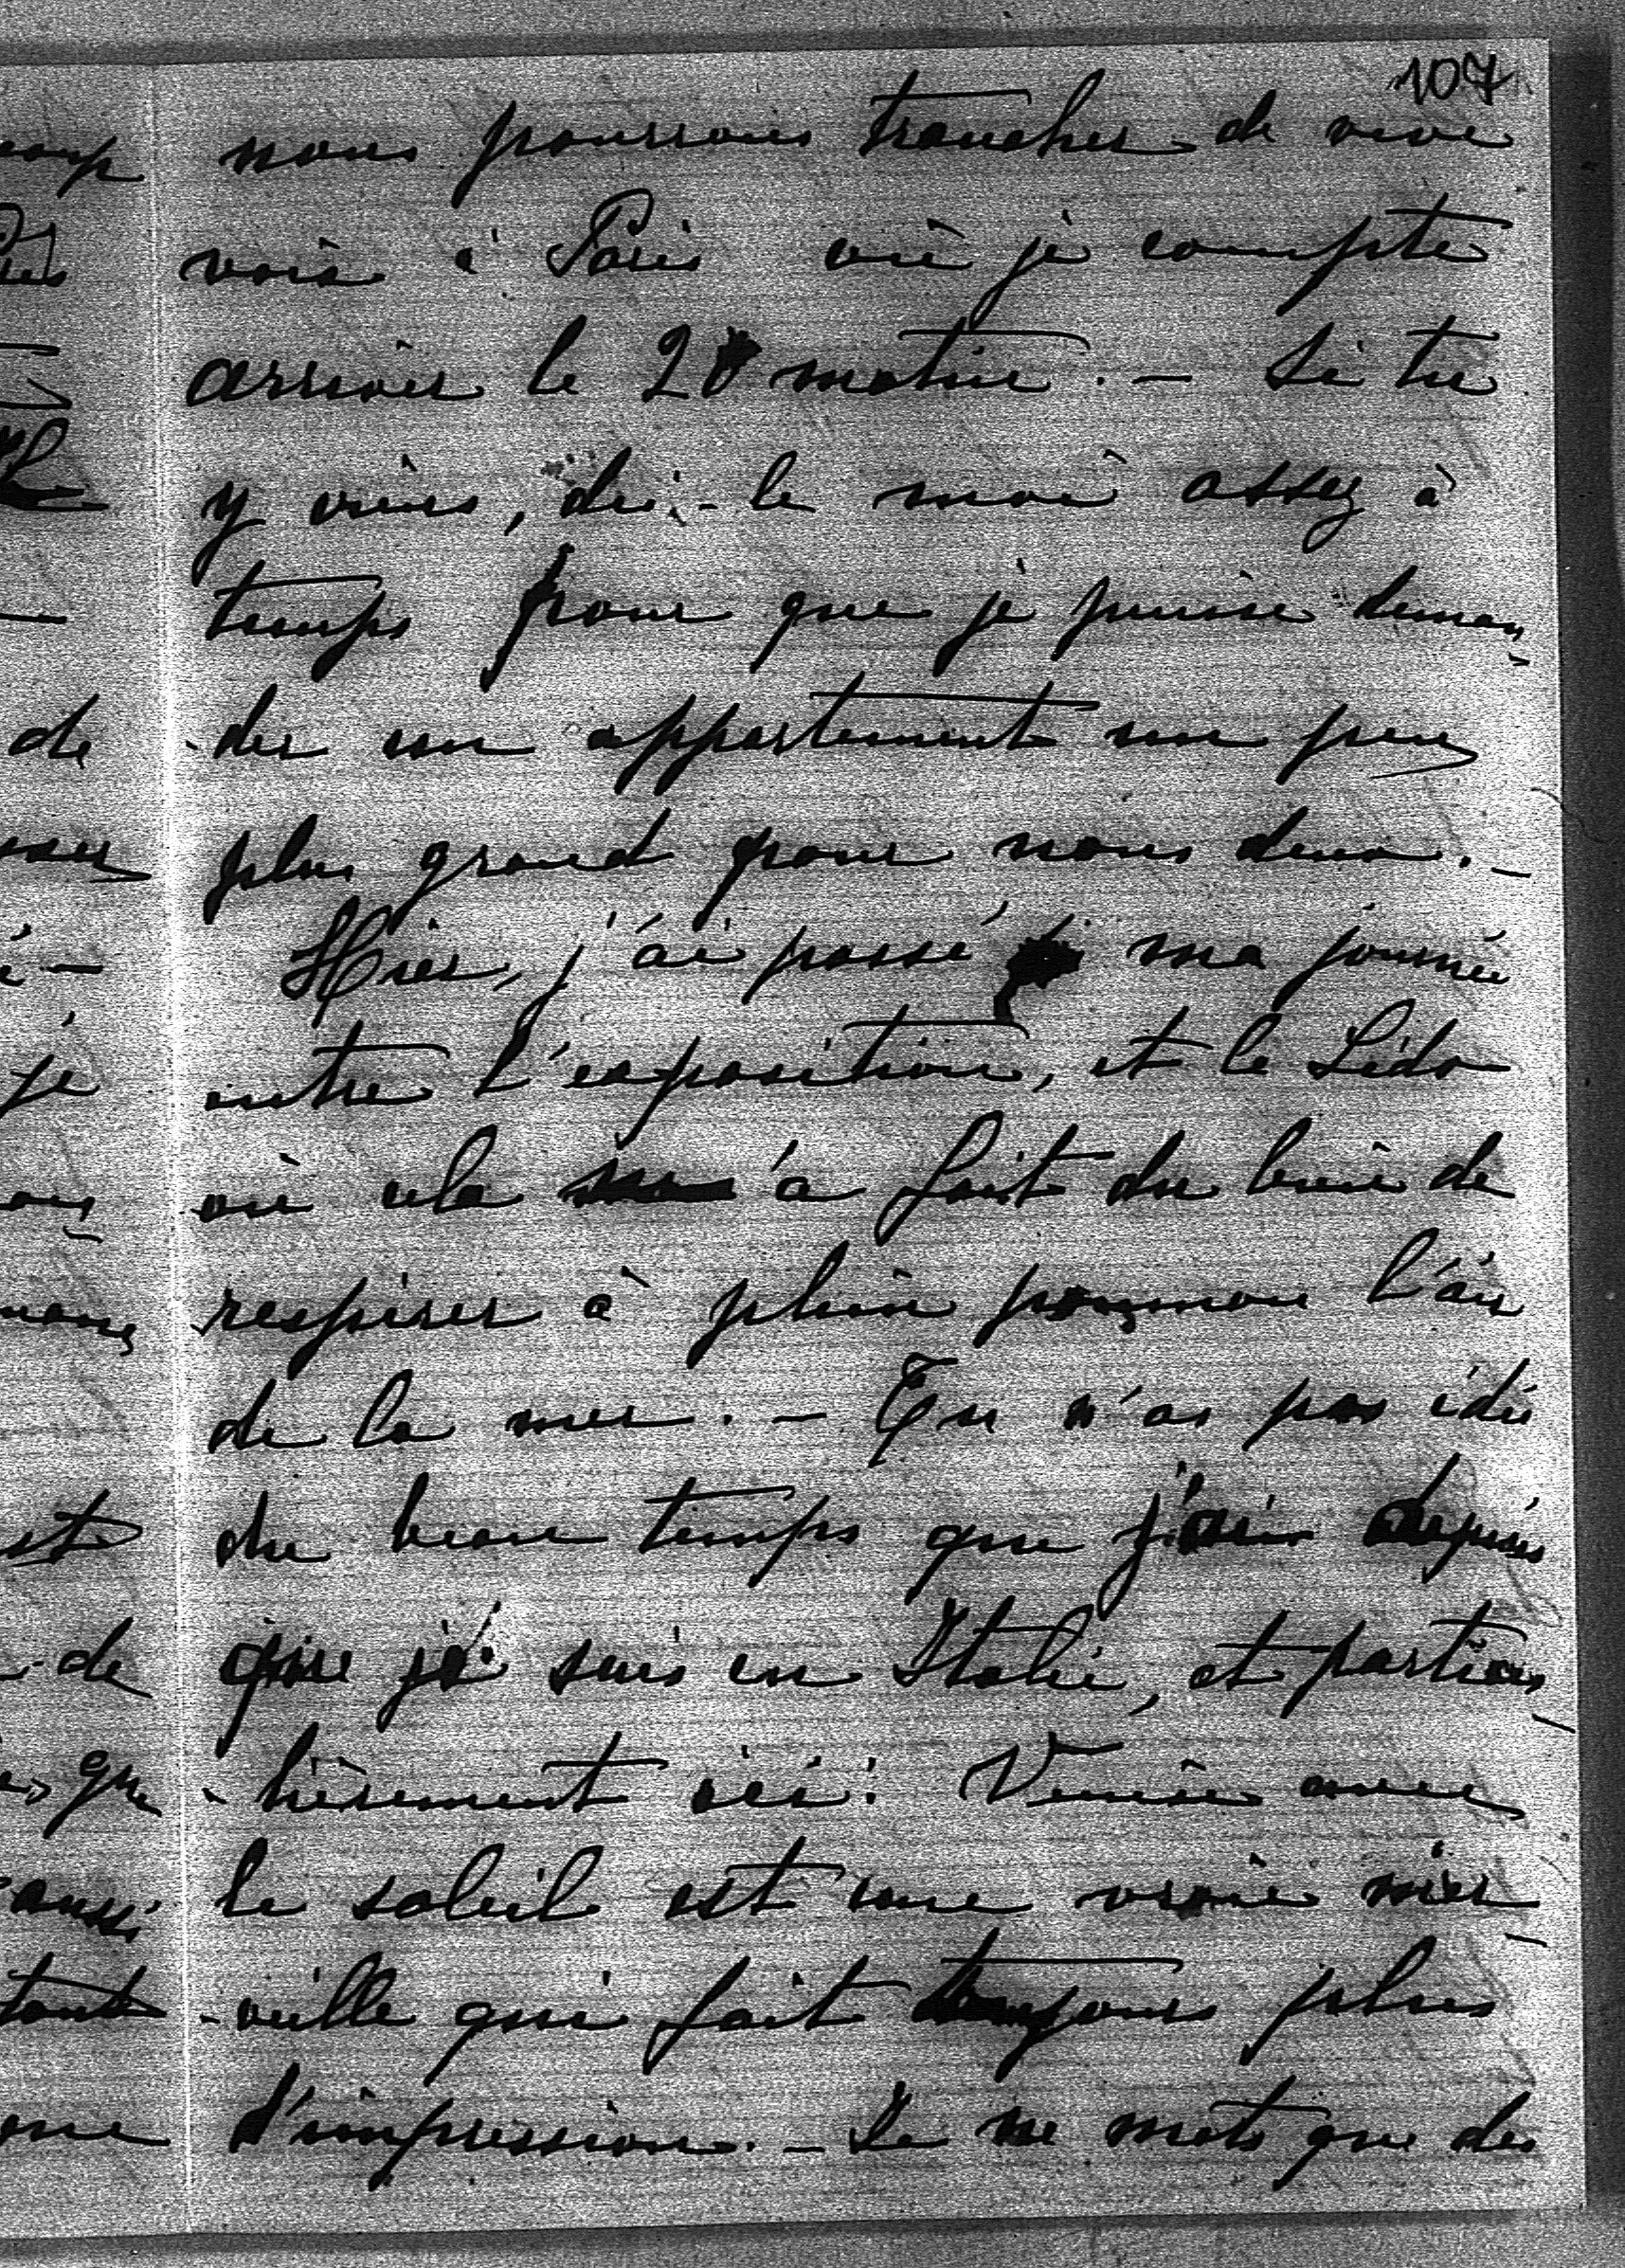 107
nous pourrons trancher de vive
voix à Paris où je compte
arriver le 28 matin. — Si tu
y viens, dis-le moi assez à
temps pour que je puisse deman-
-der un appartement un peu
plus grand pour nous deux. —
Hier, j'ai passé ma journée
entre l'exposition, et le Lido
où cela m'a fait du bien de
respirer à plein poumon l'air
de la mer. — Tu n'as pas idée
du beau temps que j'ai depuis
que je suis en Italie, et particu-
-lièrement ici: Venise avec
le soleil est une vraie mer-
-veille qui fait toujours plus
d'impression. — Je ne mets que des